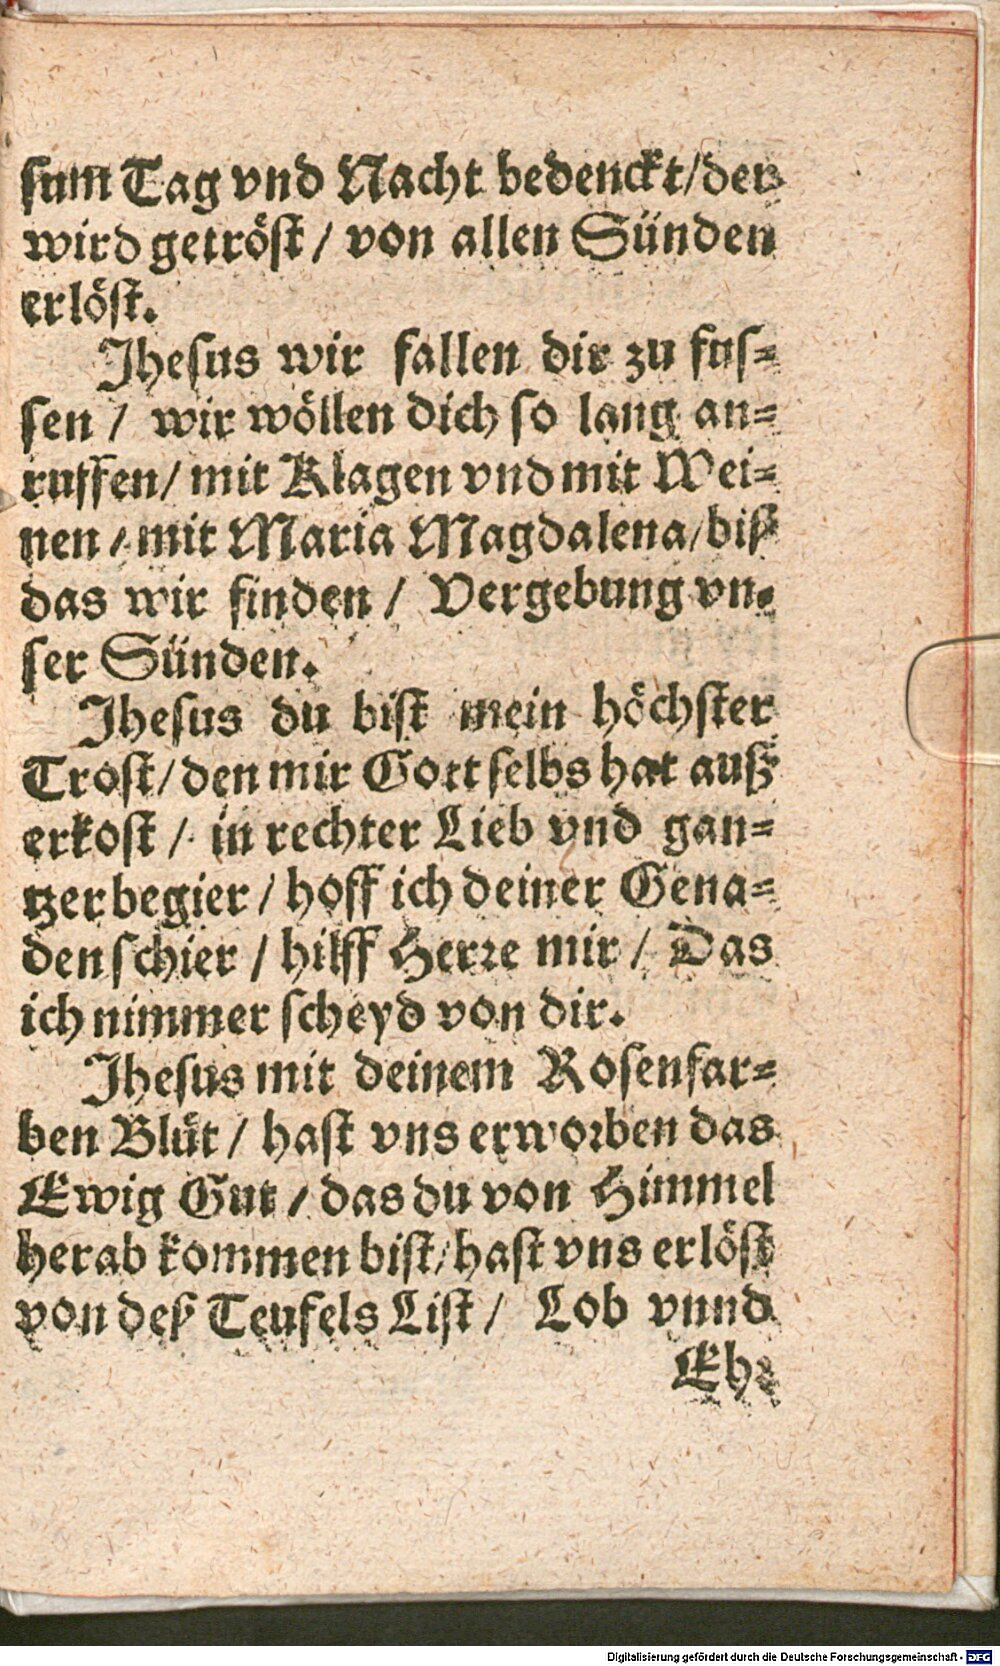 sum Tag vnd Nacht bedenckt/der
wird getröst / von allen Sünden
erlöst.
Jhesus wir fallen dir zu fus⸗
sen / wir wöllen dich so lang an⸗
ruffen/ mit Klagen vnd mit Wei⸗
nen / mit Maria Magdalena/biß
das wir finden / Vergebung vn⸗
ser Sünden.
Jhesus du bist mein höchster
Trost/den mir Gott selbs hat auß
erkost / in rechter Lieb vnd gan⸗
tzer begier / hoff ich deiner Gena⸗
den schier / hilff Herre mir / Das
ich nimmer scheyd von dir.
Jhesus mit deinem Rosenfar⸗
ben Blůt / hast vns erworben das
Ewig Gut / das du von Himmel
herab kommen bist/hast vns erlöst
von deß Teufels List / Lob vnnd
Eh⸗
Digitalisierung gefördert durch die Deutsche Forschungsgemeinschaft - DFG